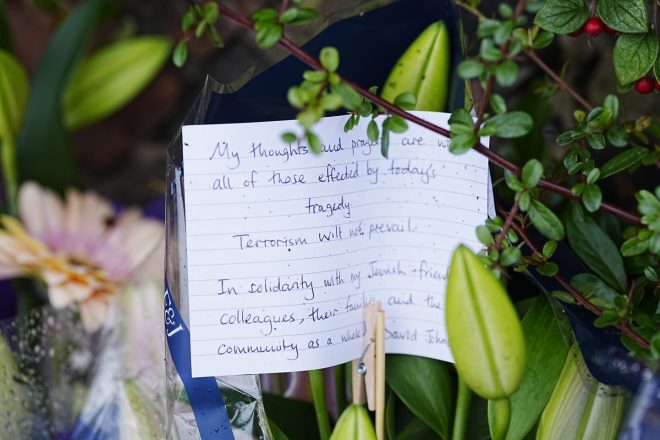 My thoughts and prayers are wi
all of those effected by today's
tragedy
Terrorism will not prevail.
In solidarity with my Jewish friend
colleagues, their and the
community as a whole David John